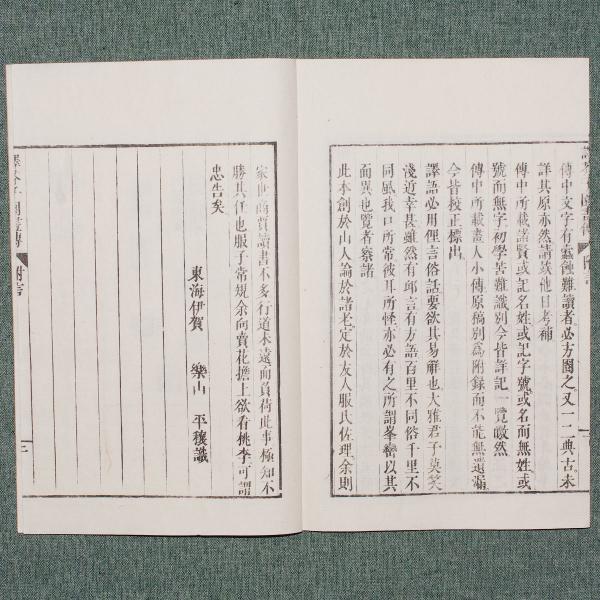 傳中文字有蠧蝕難讀者必方圍之又一二典古未
詳其原亦然請𫎇他日考補
傳中所載諸賢或記名姓或記字號或名而無姓或
號而無字初學苦難識別今皆詳記一覽皦然
傳中所載畫人小傳原稿別為附録而不能無還漏
今皆挍正標出
譯語必用俚言俗話要欲其易解也大雅君子莫笑
淺近幸甚雖然有邱言有方語百里不同俗千里不
同風我口所常彼耳所怪亦必有之所謂峯巒以其
面異也覽者察諸
此本創於山人論於諸老定於友人服氏佐理余則
家世商賈讀書不多行道未遠而負荷此事極知不
勝其任也服子常規余向賣花擔上欲看桃李可謂
忠告矣
東海伊賀 樂山 平穰識